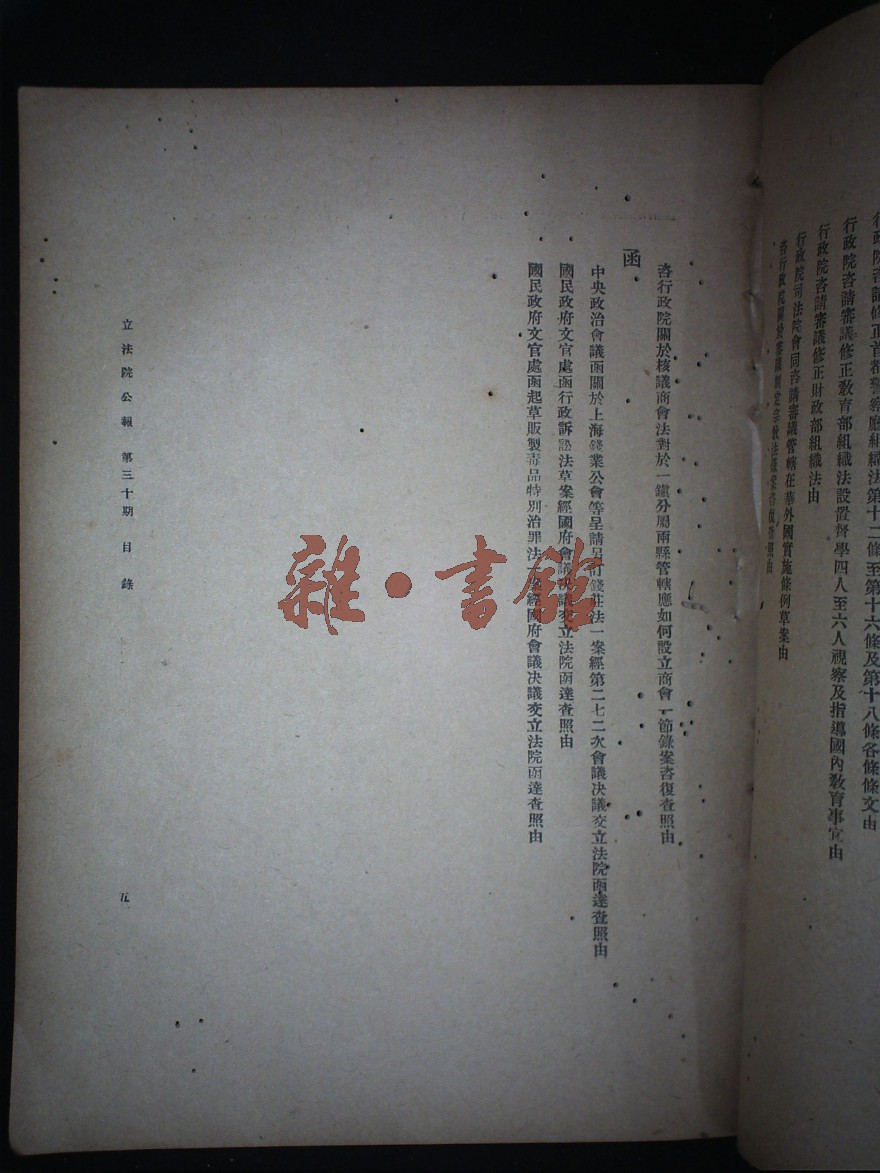 行政院咨請修正首都警察廳組織法第十二條至第十六條及第十八條各條條文由
行政院咨請審議修正敎育部組織法設置督學四人至六人視察及指導國內敎育事宜由
行政院咨請審議修正財政部組織法由
行政院司法院會同咨請審議管轄在華外國實施條例草案由
咨行政院關於審議制定宗敎法案咨復查照由
咨行政院關於核議商會法對於一鎭分屬兩縣管轄應如何設立商會一節錄案咨復查照由
函
中央政治會議函關於上海錢業公會等呈請另訂錢莊法一案經第二七二次會議决議交立法院函達查照由
國民政府文官處函行政訴訟法草案經國府會議决議交立法院函達查照由
國民政府文官處函起草販製毒品特別治罪法一案經國府會議决議交立法院函達查照由
立法院公報 第三十期 目錄
五
雜·書館